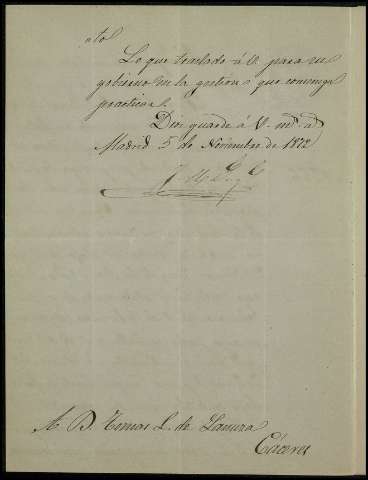 Lo que traslado á V. para su
gobierno en la gestion s que convenga
practicar.
Dios guarde á V. m.s a.s
Madrid 5 de Noviembre de 1872
A D. Tomas L. de Lanuza
Cáceres